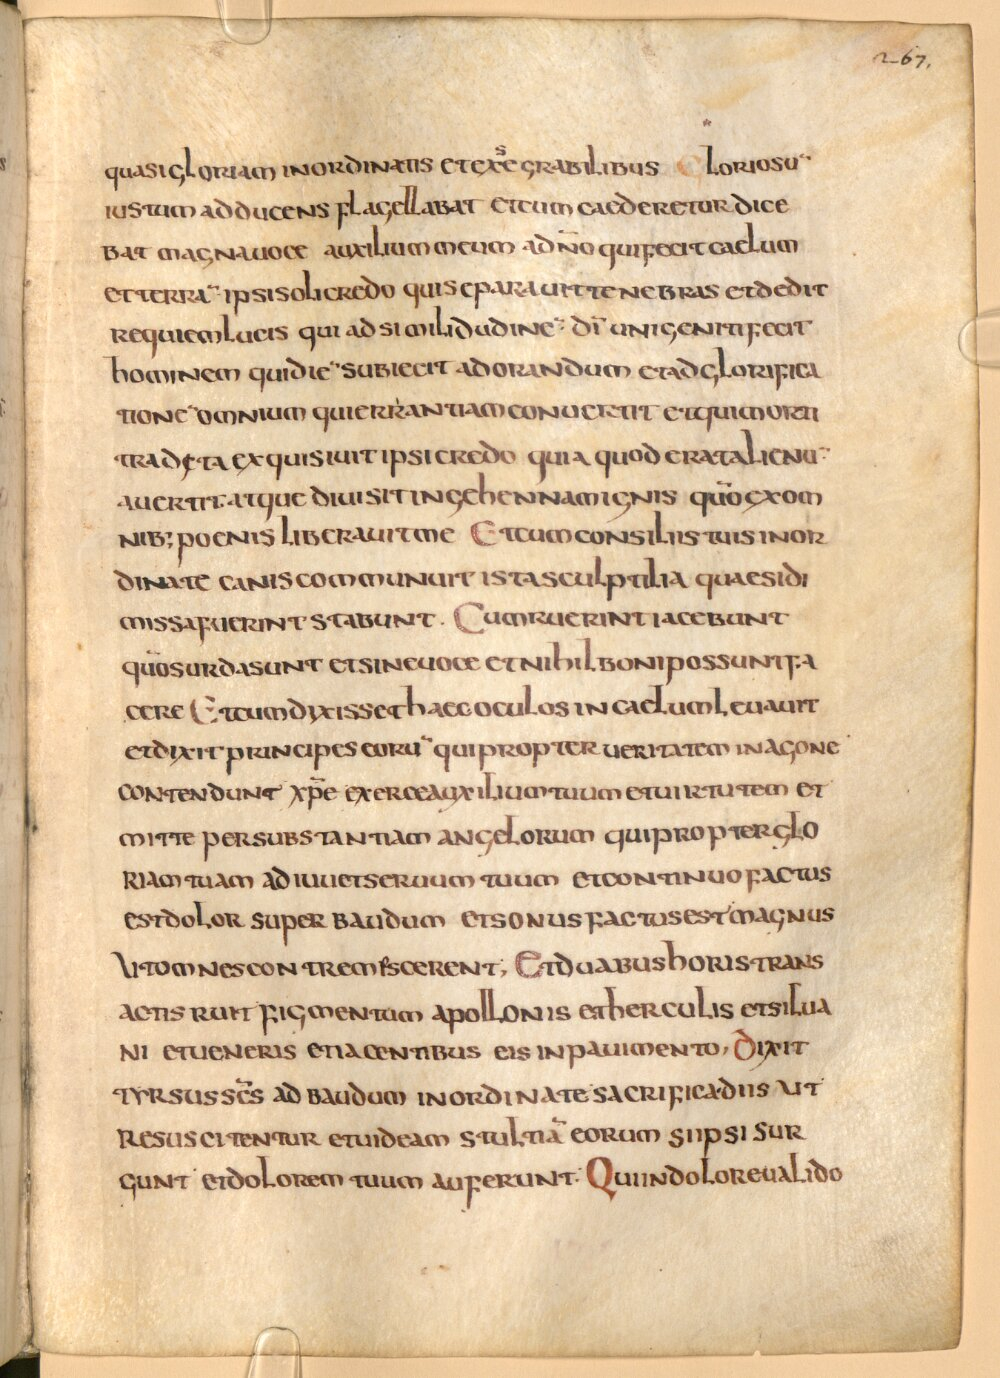 267.
quasi gloriam inordinatis et exsegrabilibus Gloriosū
iustum adducens flagellabat et cum caederetur dice
bat magna uoce auxilium meum ad dn̄o qui fecit caelum
et terrā ipsi soli credo qui separauit tenebras et dedit
requiem lucis qui ad similidudinē dī unigeniti fecit
hominem qui diē subiecit adorandum et ad glorifica
tionē omnium qui errantiam conuertit et qui morti
tradęta exquisiuit ipsi credo quia quod erat alienū
auertit atque diuisit in gehennam ignis quō ex om
nib; poenis liberauit me Et cum consiliis tuis inor
dinate canis communuit ista sculptilia quae si di
missa fuerint stabunt. Cum ruerint iacebunt
quō surda sunt et sine uoce et nihil boni possunt fa
cere Et cum dixisset haec oculos in caelum leuauit
et dixit princeps eorū qui propter ueritatem in agone
contendunt xp̄e exerce auxilium tuum et uirtutem et
mitte per substantiam angelorum qui propter glo
riam tuam adiuuet seruum tuum et continuo factus
est dolor super baudum et sonus factus est magnus
Ut omnes contremescerent; Et duabus horis trans
actis ruit figmentum apollonis et herculis et silua
ni et ueneris et iacentibus eis in pauimento, Dixit
tyrsus sc̄s ad baudum inordinate sacrifica diis ut
resuscitentur et uideam stultiā eorum si ipsi sur
gunt et dolorem tuum auferunt. Qui in dolore ualido